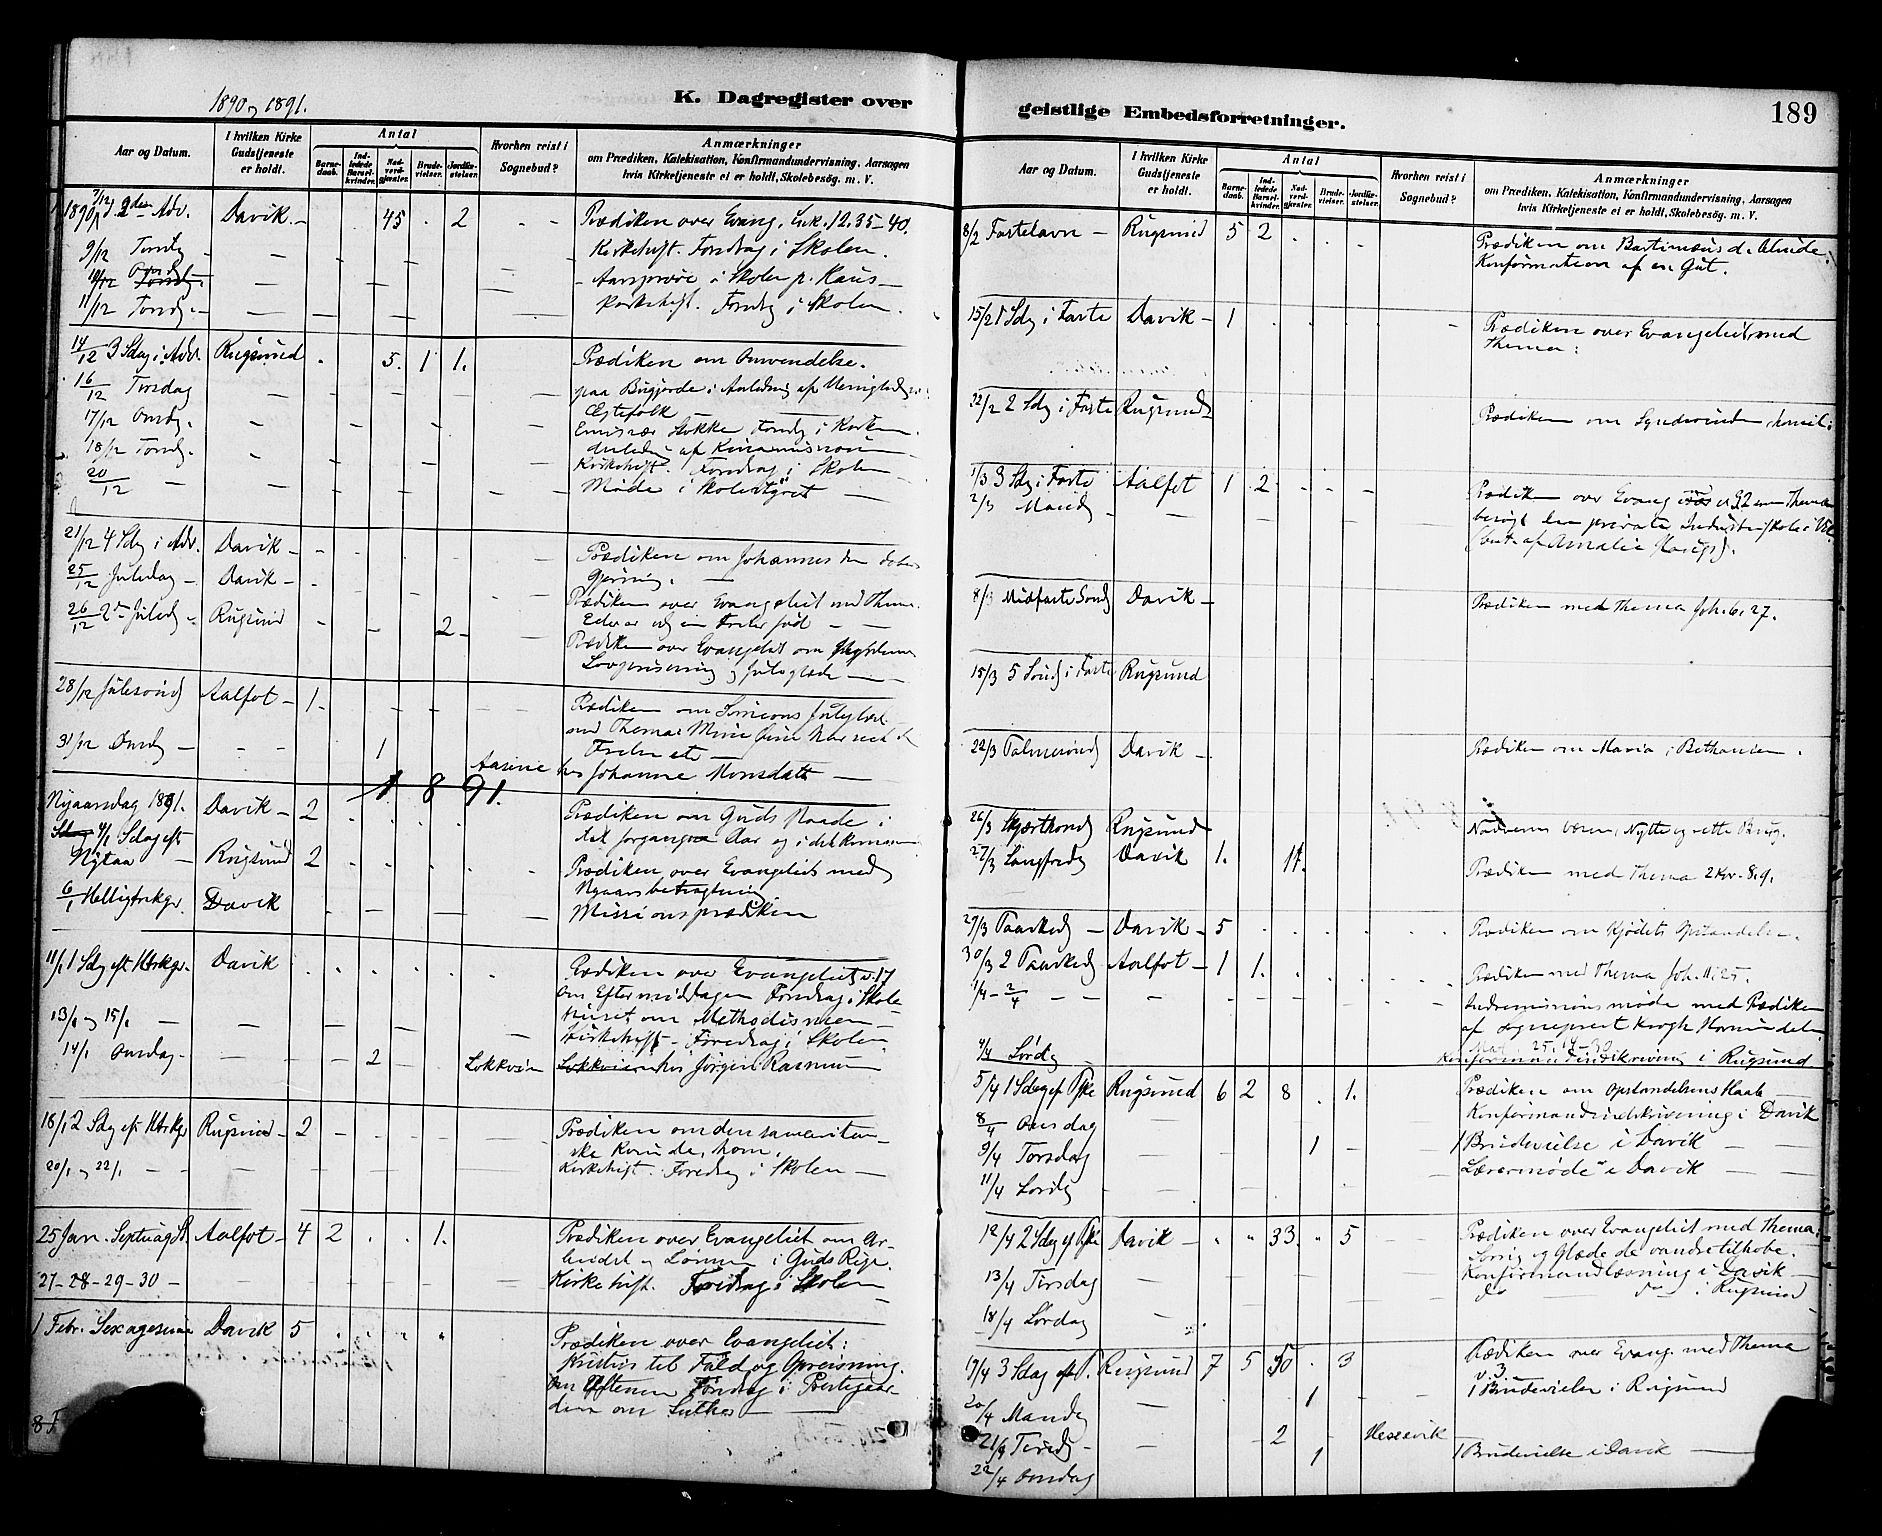 1890 og 1891.
K. Dagregister over
Aar og Datum.
I hvilken Kirke Gudstjeneste er holdt.
Antal
Barnedaab.
Indledede Barselkvinder.
Nadverdgjester.
Brudevielser.
Jordfæstelser.
Hvorhen reist i Sognebud?
Anmærkninger
om Prædiken, Katekisation, Konfirmandundervisning, Aarsagen
hvis Kirketjeneste ei er holdt, Skolebesøg. m. V.
1890 7/12 2den Adv. Davik 45 2 Prædiken over Evang. Luk. 12.35-40.
9/12 Tirsdg Kirkeskift. Foredrag i Skolen.
10/12 Onsdg Aarsprøve i Skolen p.
11/12 Torsdg. Foredrag i Skolen.
14/12 3 Sdag i Adv. Rugsund 5 1 1. Prædiken om Omvendelse.
16/12 Tirsdag paa i Anledning af
Ægtefolk
17/12 Onsdg. Emissær Foredrag i Kirken
18/12 Torsdg. af Kinamissionen
Foredrag i Skolen
20/12 Møde i Skolestyret
21/12 4 Sdg i Adv. Davik Prædiken om Johannes den
Gjerning.
25/12 Juledag Davik Prædiken over Evangeliet med Thema
Eder er idag en Frelser født
26/12 2den Juledg Rugsund 2 Prædiken over Evangeliet om
Lovprisning og Juleglæde
28/12 Julesøndg Aalfot 1 Prædiken om Simeons
med Thema: Mine Øine have seet
Frelse etc
31/12 Onsdg 1 hos Johanne Monsdatter
1891.
Nyaarsdag 1891. Davik 2 Prædiken om Guds Naade i
det forgangne Aar og i det kommende
4/1 Sdag eft Nytaar Rugsund 2 Prædiken over Evangeliet med
Nyaarsbetragtning
6/1 Helligtrekgr. Davik Missionsprædiken
11/1 1 Sdg eft Htrkgr. Davik Prædiken over Evangeliet v. 17
Om Eftermiddagen Foredrag i Skole-
huset om Methodismen
13/1 og 15/1 Foredrag i Skolen
14/1 Onsdag 2 hos Jørgen Rasmus
18/1 2 Sdg eft Htrkgr Rugsund 2 Prædiken om den samaritan-
ske Kvinde, hom.
20/1 og 22/1 Foredrag i Skolen
25 Jan. Septuag. S. Aalfot 4 2 1. Prædiken over Evangeliet om Ar-
beidet og Lønnen i Guds Rige.
27-28-29-30 Foredrag i Skolen
1 Febr. Sexagesima Davik 5 Prædiken over Evangeliet:
Kristus til Fald og Opreisning.
Om Aftenen Foredrag i Prestegaar-
den om Luther
8 F
geistlige Embedsforretninger.
189
Aar og Datum.
I hvilken Kirke Gudstjeneste er holdt.
Antal
Barnedaab.
Indledede Barselkvinder.
Nadverdgjester.
Brudevielser.
Jordfæstelser.
Hvorhen reist i Sognebud?
Anmærkninger
om Prædiken, Katekisation, Konfirmandundervisning, Aarsagen
hvis Kirketjeneste ei er holdt, Skolebesøg. m. V.
8/2 Fastelavn Rugsund 5 2 Prædiken om Bartimæus d. blinde.
Konfirmation af en Gut.
15/2 1 Sdg i Faste Davik 1 Prædiken over Evangeliet med
Thema:
22/2 2 Sdg i Faste Rugsund Prædiken om Synderinden,
1/3 3 Sdg i Faste Aalfot 1 2 Prædiken over Evang
2/3 Mandg besøgt den private Industriskole i
af Amalie
8/3 Midfaste Søndg Davik Prædiken med Thema Joh. 6. 27.
15/3 5 Søndg i Faste Rugsund
22/3 Palmesøndg Davik Prædiken om Maria i Bethanien.
26/3 Skjærtorsdg Rugsund Nadverens Væsen, Nytte og rette Brug.
27/3 Langfredg Davik 1. 11. Prædiken med Thema 2 Kor. 8.9.
29/3 Paaskedg Davik 5 Prædiken om Kjødets Opstandelse.
30/3 2 Paaskedg Aalfot 1 1. Prædiken med Thema Joh. 11.25.
1/4 - 2/4 Indremissionsmøde med Prædiken
af sogneprest Krogh Hornindalen
Mat. 25. 14-30
4/4 Lørdg Konfirmandindskrivning i Rugsund
5/4 1 Sdag ef Pske Rugsund 6 2 8 1. Prædiken om Opstandelsens Haab
8/4 Onsdag Konfirmandindskrivning i Davik
9/4 Torsdag 1 1 Brudevielse i Davik
11/4 Lørdg Lærermøde i Davik
12/4 2 Sdag ef Pske Davik 33 5 Prædiken over Evangeliet med Thema:
Sorg og Glæde de vandre tilhobe.
13/4 Tirsdag Konfirmandlæsning i Davik
18/4 Lørdag do do i Rugsund
19/4 3 Sdag eft P. Rugsund 7 5 50 3 Prædiken over Evang. med Thema
20/4 Mandg 1 1 Brudevielse i Rugsund
21/4 Tirsdg 2
22/4 Onsdag 1 1 Brudevielse i Davik